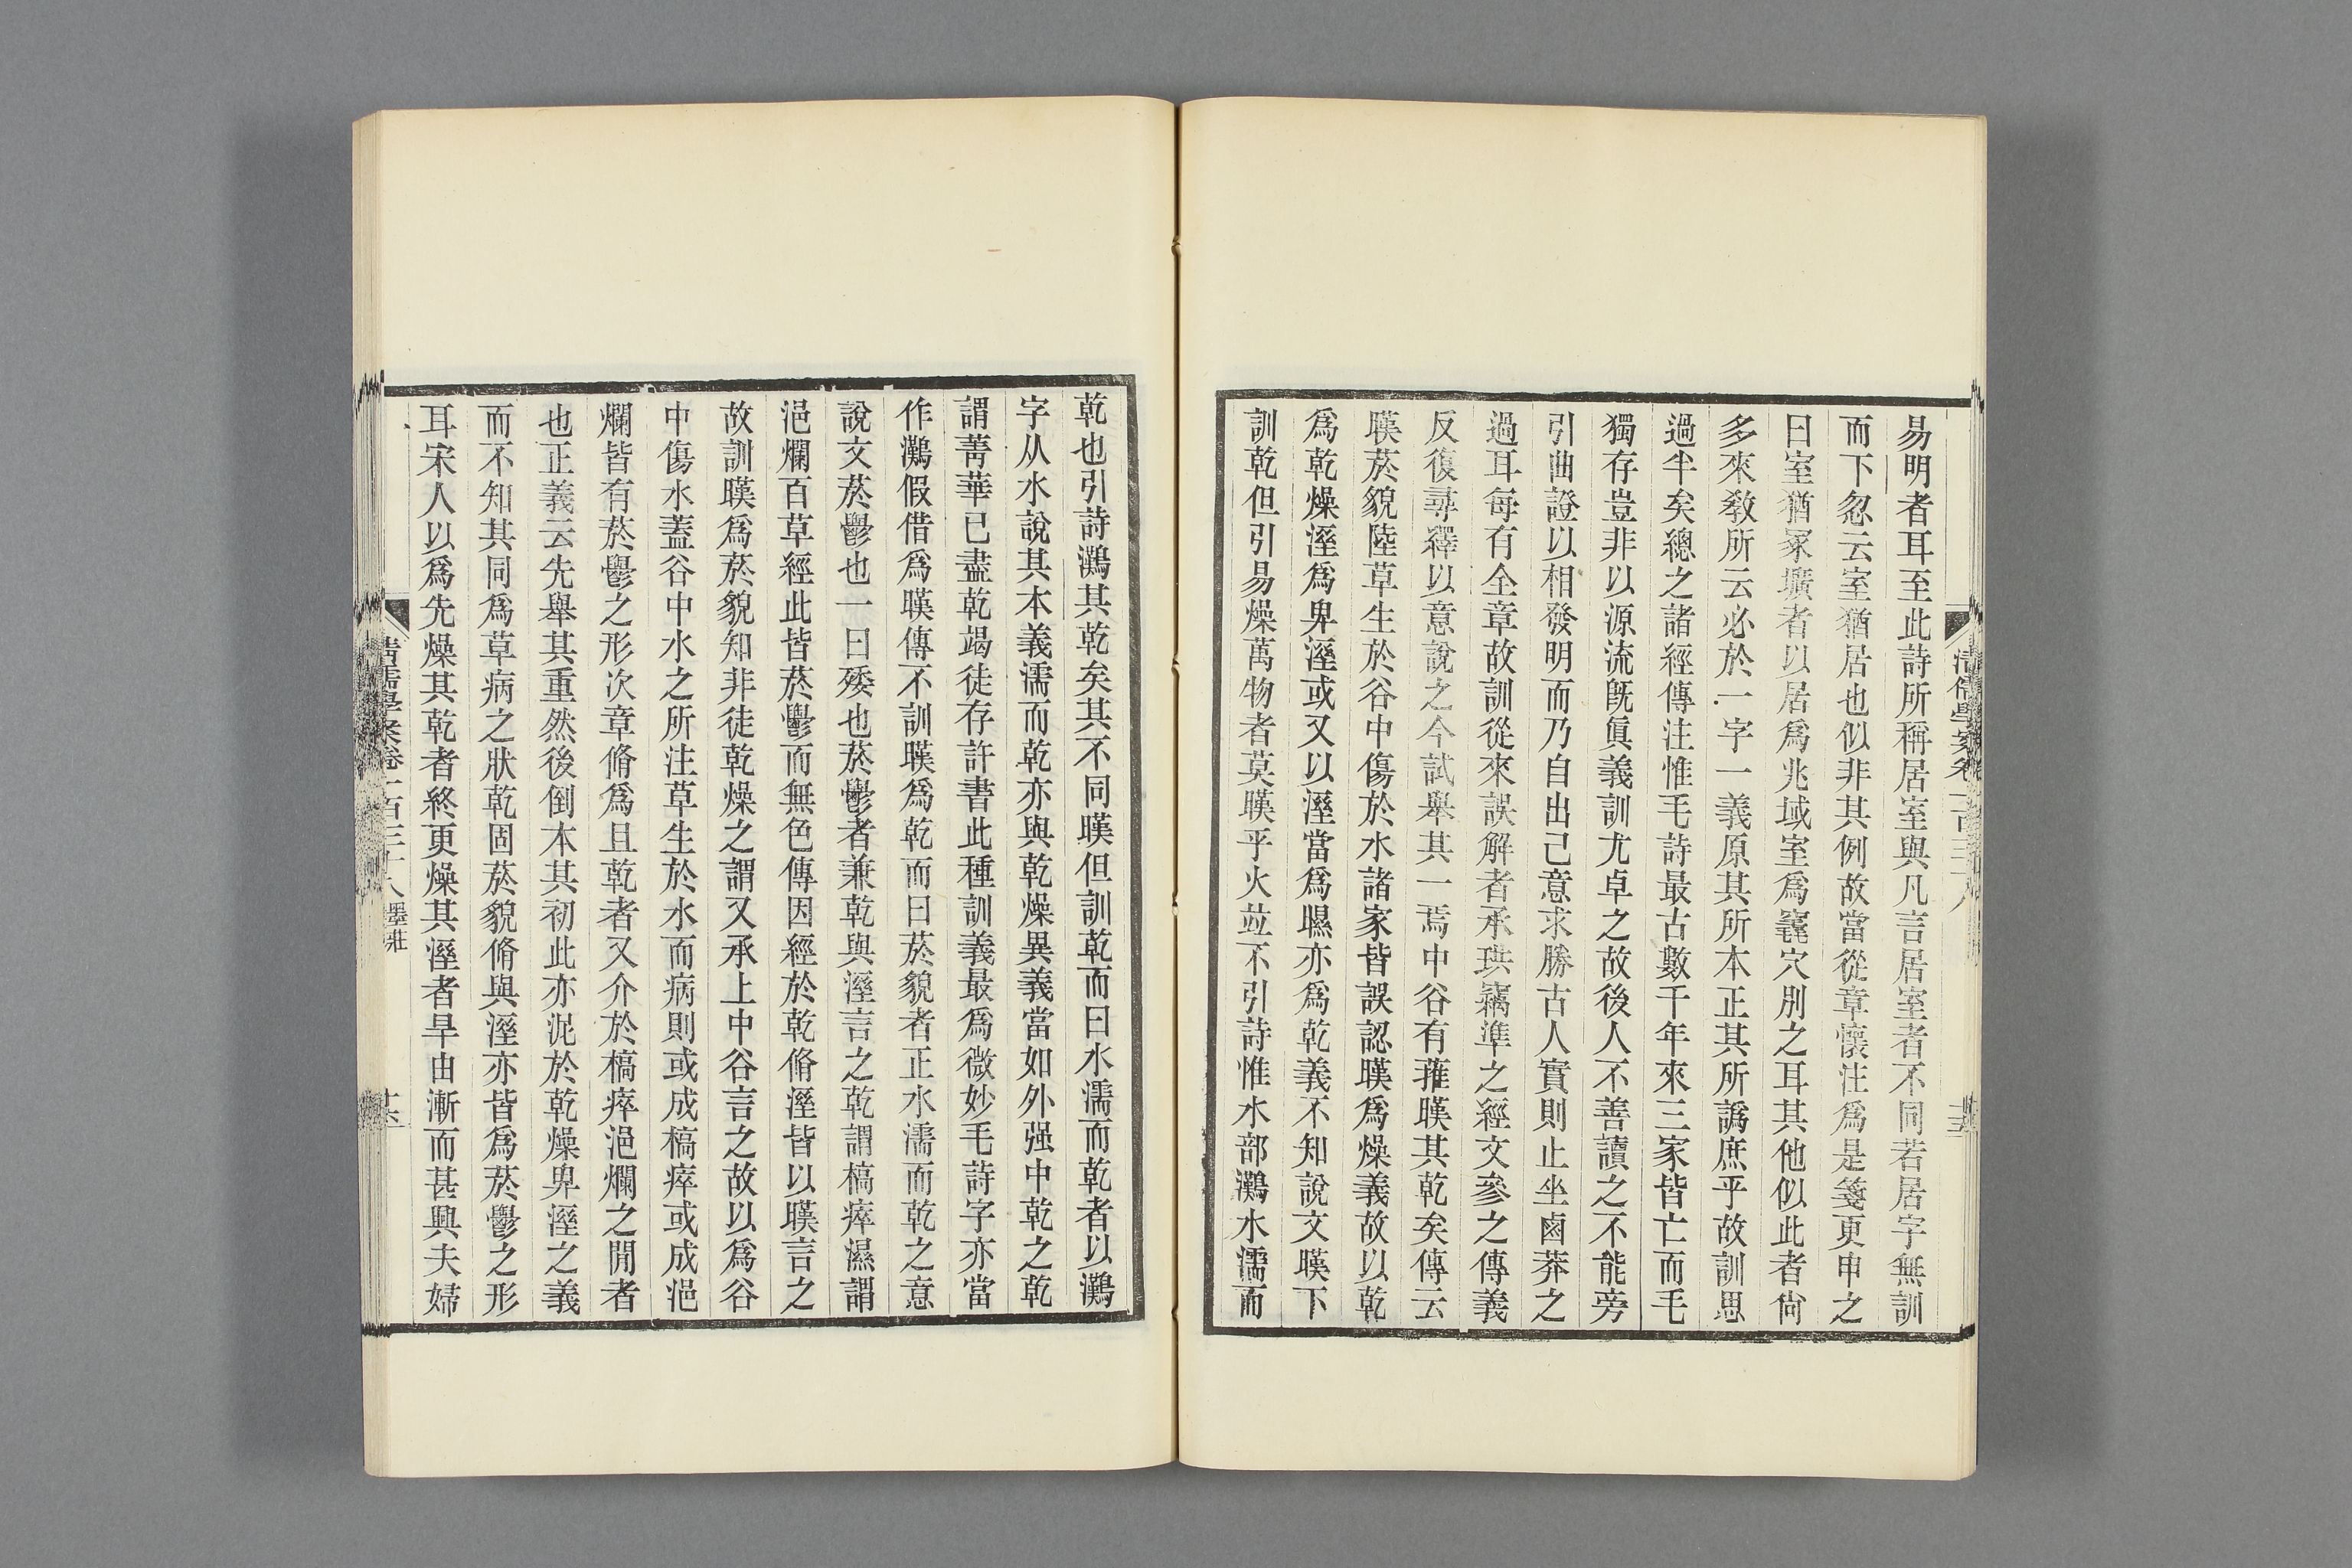 易明者耳至此詩所稱居室與凡言居室者不同若居字無訓
而下忽云室猶居也似非其例故當從章懷注爲是箋更申之
曰室猶冢壙者以居爲兆域室爲窀穴別之耳其他似此者尙
多來敎所云必於一字一義原其所本正其所譌庶乎故訓思
過半矣總之諸經傳注惟毛詩最古數千年來三家皆亡而毛
獨存豈非以源流旣眞義訓尤卓之故後人不善讀之不能旁
引曲證以相發明而乃自出己意求勝古人實則止坐鹵莽之
過耳每有全章故訓從來誤解者承珙竊準之經文參之傳義
反復尋釋以意說之今試舉其一焉中谷有蓷暵其乾矣傳云
暵菸貌陸草生於谷中傷於水諸家皆誤認暵爲燥義故以乾
爲乾燥溼爲卑溼或又以溼當爲㬤亦爲乾義不知說文暵下
訓乾但引易燥萬物者莫暵乎火竝不引詩惟水部灘水濡而
乾也引詩灘其乾矣其不同暵但訓乾而曰水濡而乾者以灘
字从水說其本義濡而乾亦與乾燥異義當如外强中乾之乾
謂菁華已盡乾竭徒存許書此種訓義最爲微妙毛詩字亦當
作灘假借爲暵傳不訓暵爲乾而曰菸貌者正水濡而乾之意
說文菸鬱也一曰矮也菸鬱者兼乾與溼言之乾謂槁瘁濕謂
浥爛百草經此皆菸鬱而無色傳因經於乾脩溼皆以暵言之
故訓暵爲菸貌知非徒乾燥之謂又承上中谷言之故以爲谷
中傷水蓋谷中水之所注草生於水而病則或成槁瘁或成浥
爛皆有菸鬱之形次章脩爲且乾者又介於槁瘁浥爛之閒者
也正義云先舉其重然後倒本其初此亦泥於乾燥卑溼之義
而不知其同爲草病之狀乾固菸貌脩與溼亦皆爲菸鬱之形
耳宋人以爲先燥其乾者終更燥其溼者旱由漸而甚興夫婦
清儒學案卷一百三十八 墨莊